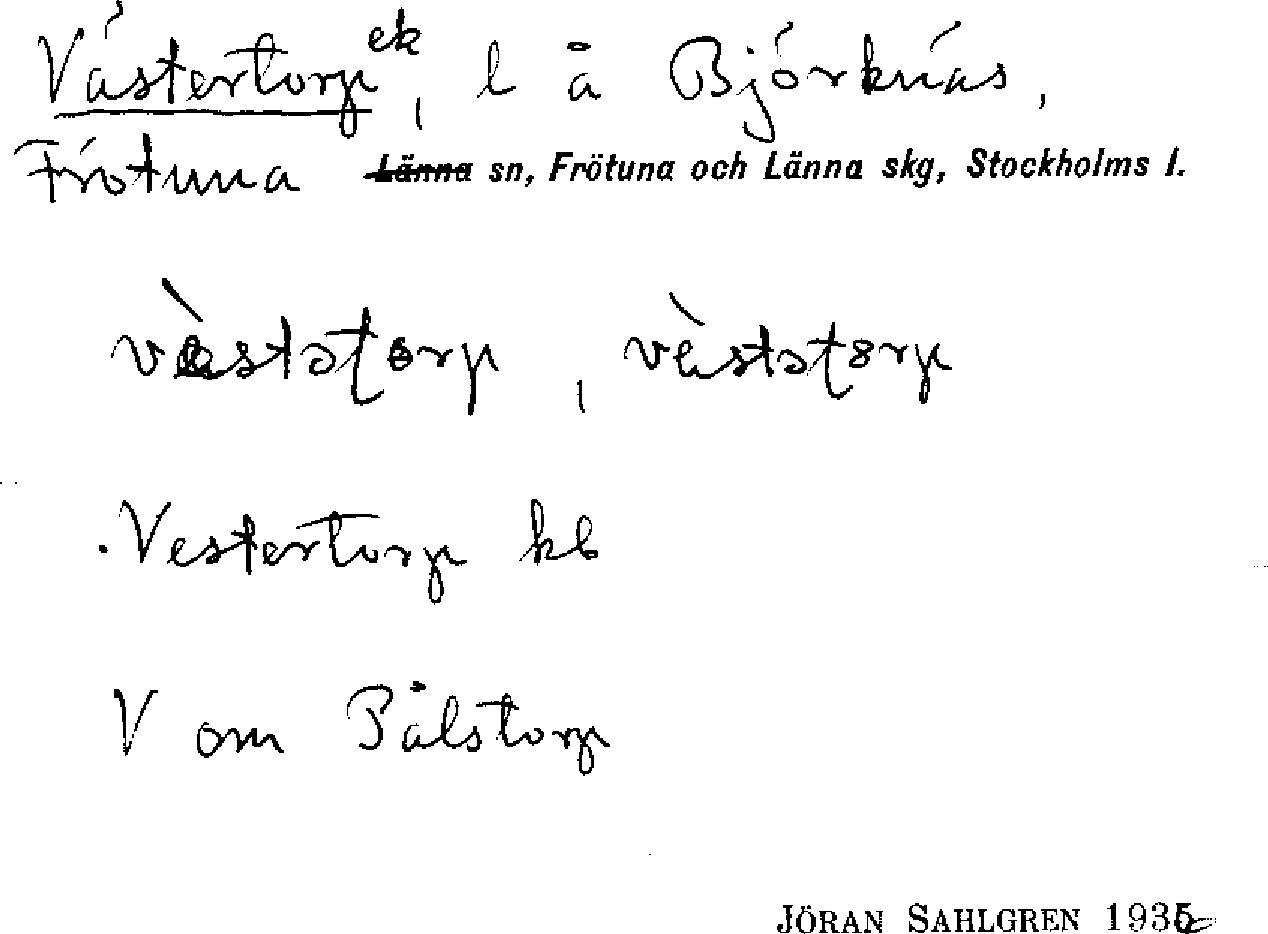 Västertorp ek, l å Björknäs,
Frötuna Länna sn, Frötuna och Länna skg, Stockholms l.
væ̀stətɵrp, vèstətɵrp
Vestertorp kb
V om Pålstorp
JÖRAN SAHLGREN 1935